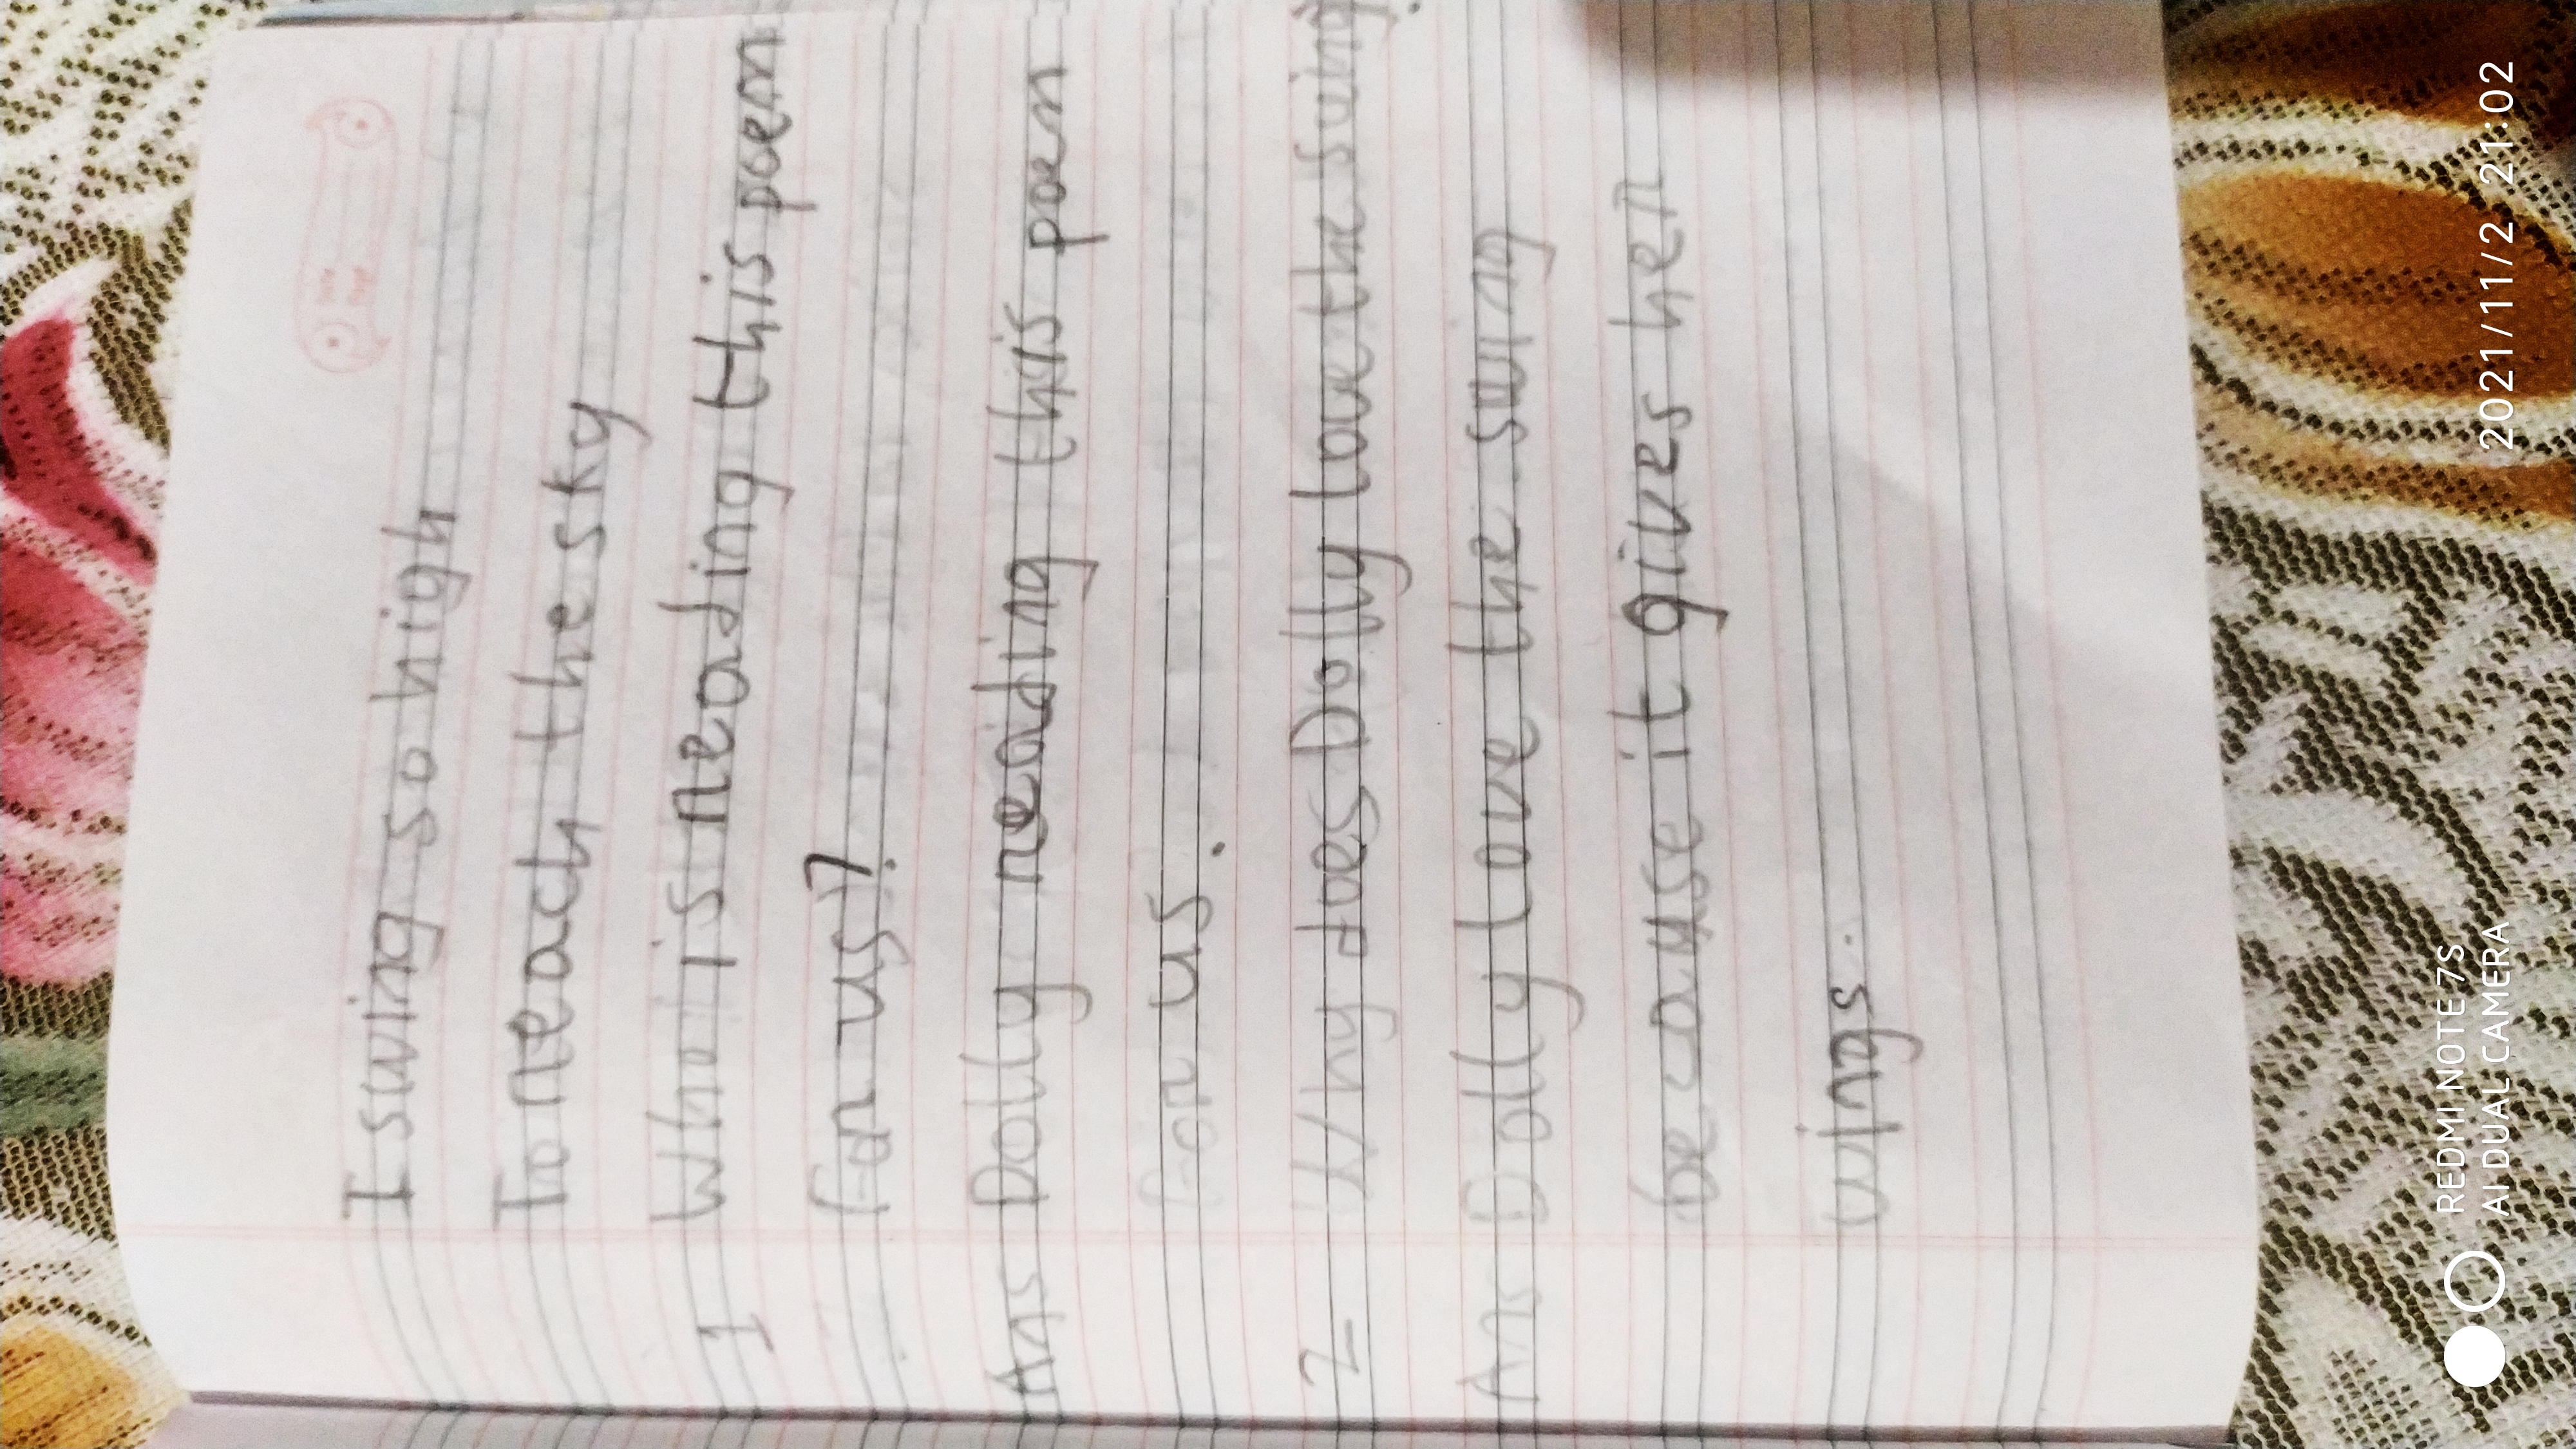 I swing so high
To reach the sky
1 Who is reading this poem
for us?
Ans Dolly reading this poem
for us.
2- Why does Dolly love the swing?
Ans Dolly love the swing
because it gives her
wings.
REDMI NOTE 7S
AI DUAL CAMERA
2021/11/2 21:02